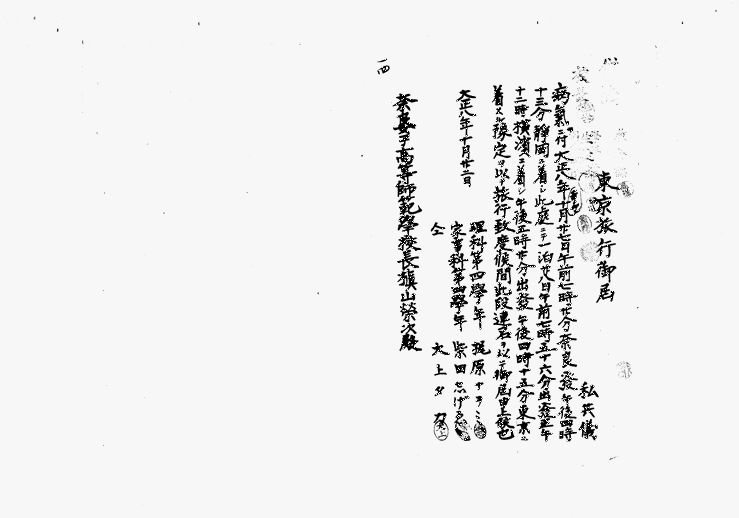 東京旅行御届
私共儀
病氣ニ付大正八年十月廿七日午前七時廿分奈良發午後四時
十三分靜岡ニ着シ此處ニテ一泊廿八日午前七時五十六分出發正午
十二時橫濱ニ着シ午後五時廿分出發午後四時十五分東京ニ
着スル豫定ヲ以テ旅行致度候間此段連名ヲ以テ御届申上候也
大正八年十月廿二日
理科第四學年 梶原
家事科第四學年 柴田
仝 大上
奈良女子高等師範學校長槇山榮次殿
一四